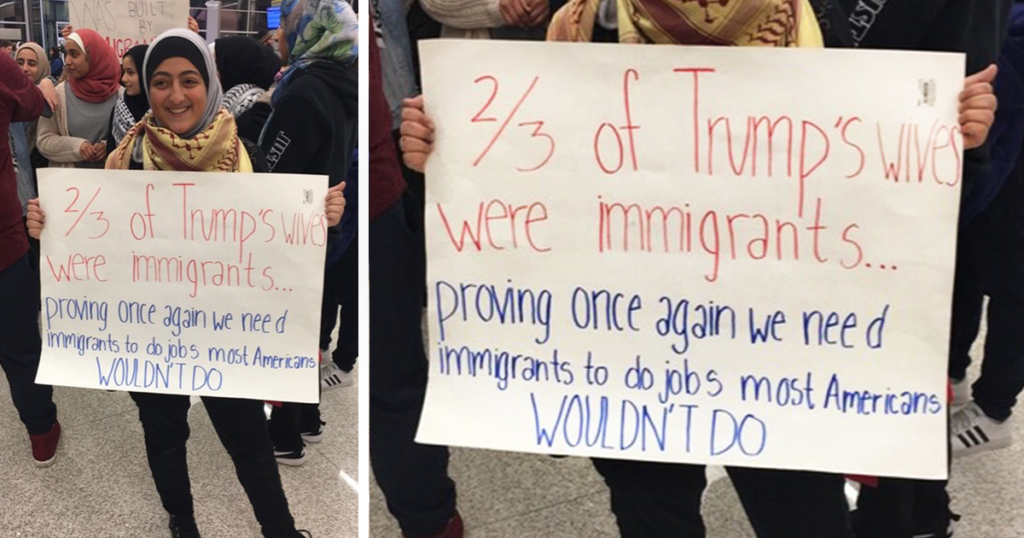 WAS BUILT
BY
2/3 of Trump's wives
were immigrants...
proving once again we need
immigrants to do jobs most Americans
WOULDN'T DO
2/3 of Trump's wives
were immigrants...
proving once again we need
immigrants to do jobs most Americans
WOULDN'T DO